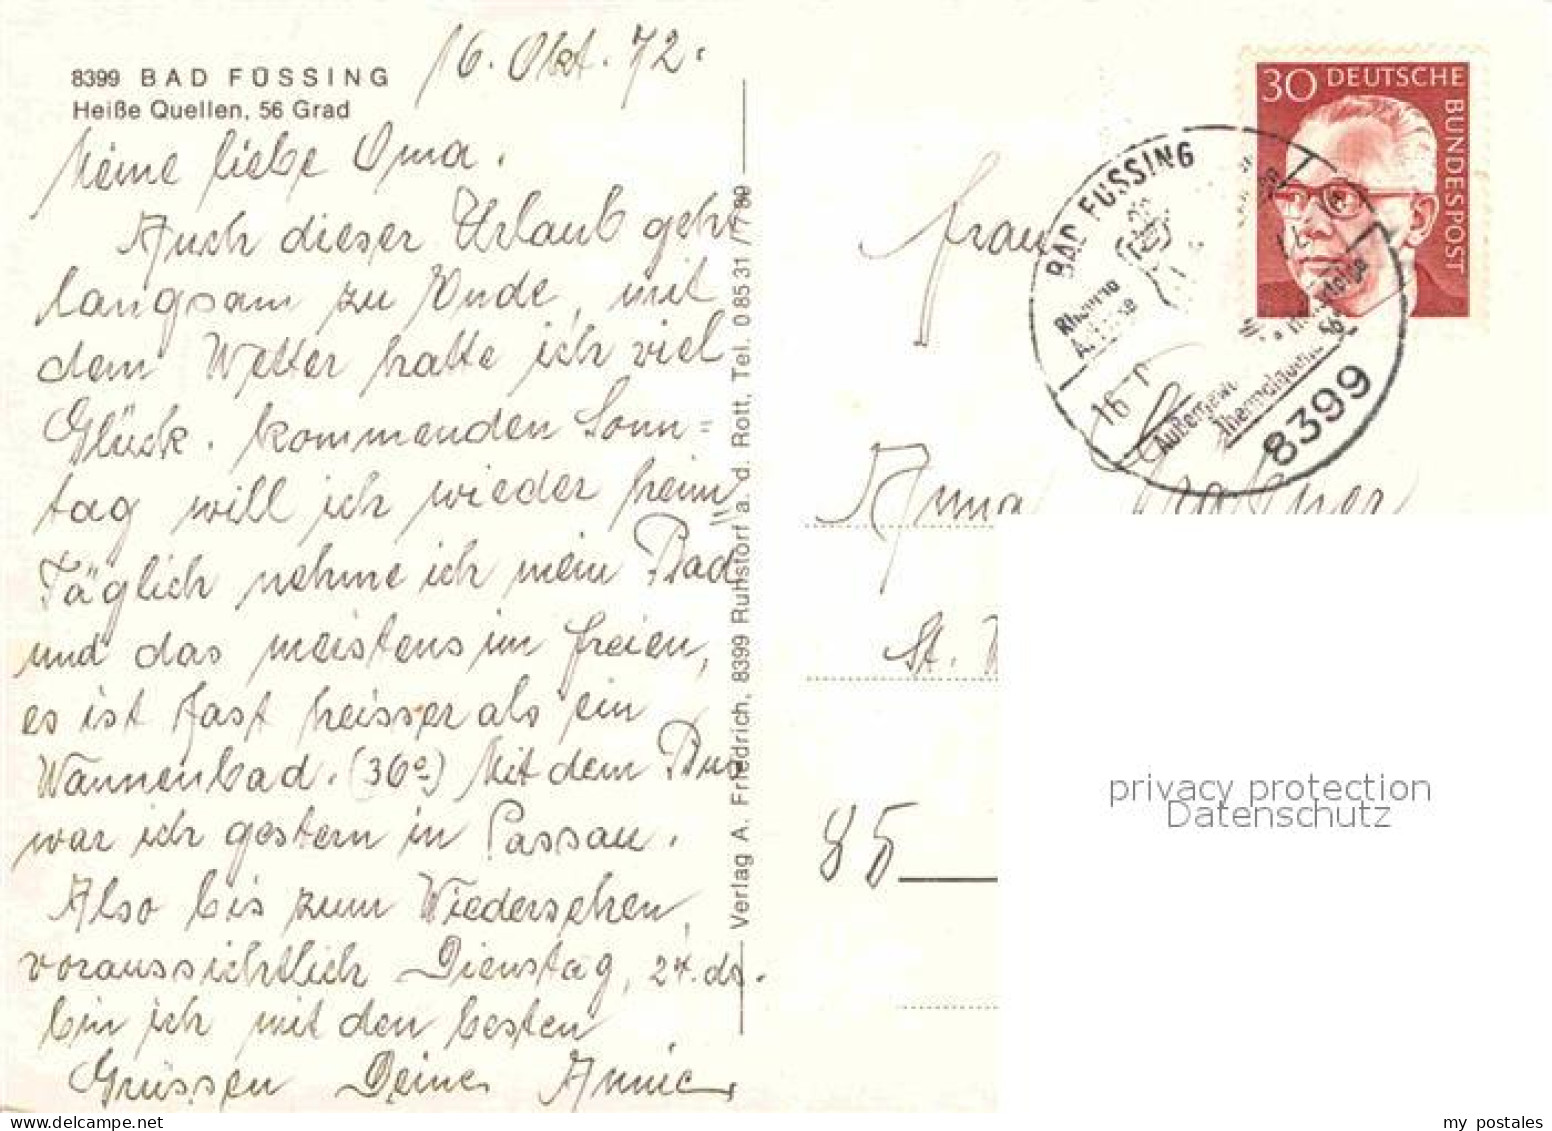 16. Okt. 72.
8399 BAD FÜSSING
Heiße Quellen, 56 Grad
Meine liebe Oma.
Auch dieser Urlaub geht
langsam zu Ende, mit
dem Wetter hatte ich viel
Glück. kommenden Sonn=
tag will ich wieder heim
Täglich nehme ich mein Bad
und das meistens im freien,
es ist fast heisser als ein
Wannenbad. (36°) Mit dem Bus
war ich gestern in Passau.
Also bis zum Wiedersehen,
voraussichtlich Dienstag, 24. ds.
bin ich mit den besten
Grüssen Deine Annie
Verlag A. Friedrich, 8399 Ruhstorf a. d. Rott, Tel. 08531/
30 DEUTSCHE
BUNDESPOST
BAD FÜSSING
16
8399
Frau
Anna
St.
85
privacy protection
Datenschutz
my postales